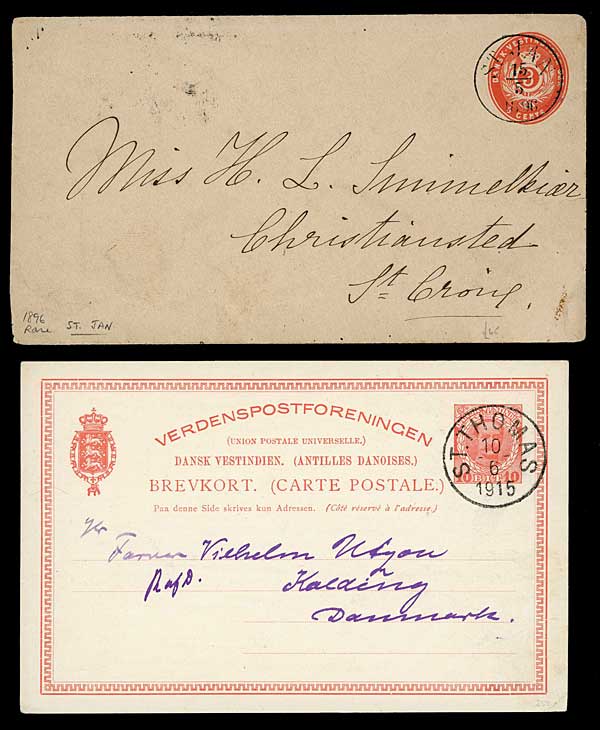 ST. JAN
15
5
1896
DANSK VESTINDIEN
3
3 CENTS
Miss H. L.
Christiansted
St Croix.
1896
Rare ST. JAN
VERDENSPOSTFORENINGEN
(UNION POSTALE UNIVERSELLE.)
DANSK VESTINDIEN. (ANTILLES DANOISES.)
BREVKORT. (CARTE POSTALE.)
Paa denne Side skrives kun Adressen. (Côté réservé à l'adresse.)
ST. THOMAS
10
6
1915
10 BIT 10
Hr
Farver Vilhelm
Kolding
Danmark.